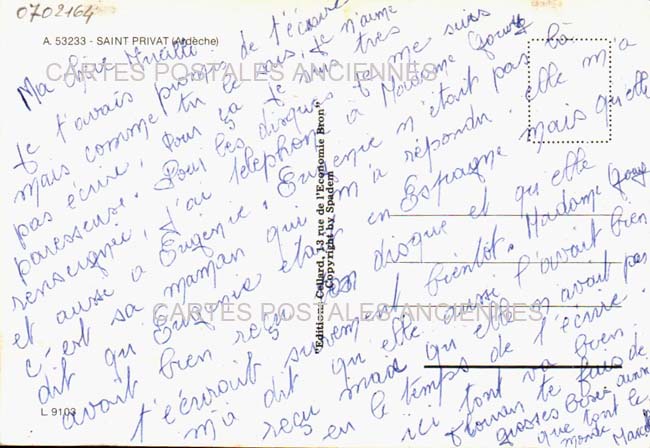 0702164
A. 53233 - SAINT PRIVAT (Ardèche)
CARTES POSTALES ANCIENNES
Ma chère Mireille
je t'avais promis de t'écrire
mais comme tu le sais, je n'aime
pas écrire. Pour ça je suis très
paresseuse. Pour les disques je me suis
renseignée, j'ai téléphoné à Madame
et aussi à Eugénie. Eugénie n'était pas là
c'est sa maman qui m'a répondu. elle m'a
dit qu'Eugénie était en Espagne mais qu'elle
avait bien reçu son disque et qu'elle
t'écrirait sûrement bientôt. Madame
m'a dit qu'elle aussi l'avait bien
reçu mais qu'elle n'avait pas
eu le temps de l'écrire.
ici tout va bien.
je te fais de
grosses bises ainsi
que tout le
monde
"Editions Cellard, 13 rue de l'Economie Bron"
Copyright by Spadem
CARTES POSTALES ANCIENNES
L 9103